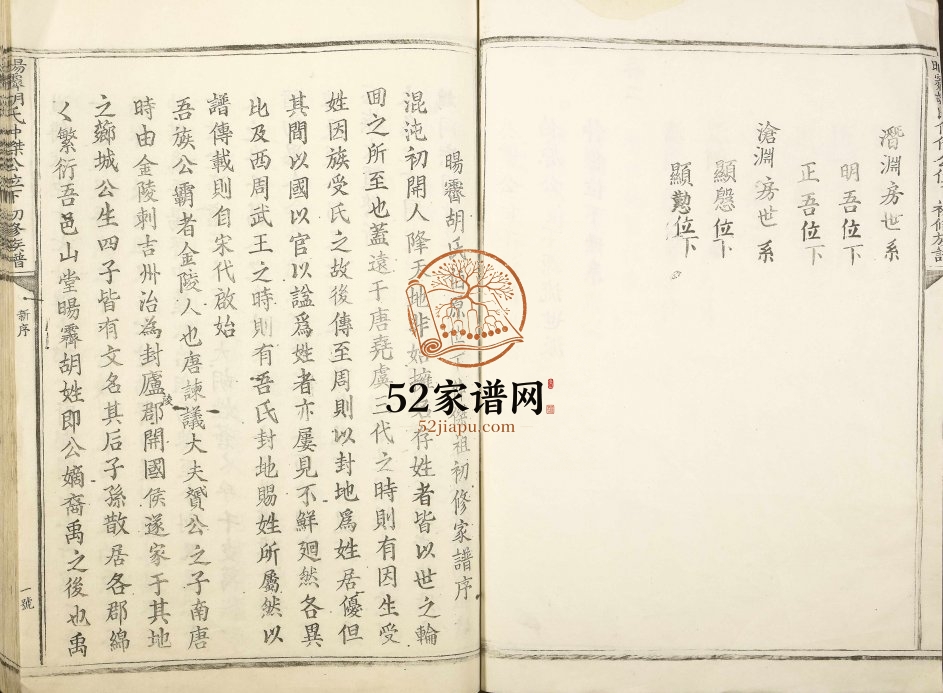 潛淵房世系
明吾位下
正吾位下
滄淵房世系
顯慇位下
顯懃位下
暘霽胡氏 祖初修家譜序
混沌初開人降天地非始 存姓者皆以世之輪
囬之所至也蓋遠于唐堯虞三代之時則有因生受
姓因族受氏之故後傳至周則以封地爲姓居優但
其間以國以官以諡爲姓者亦屢見不鮮廻然各異
比及西周武王之時則有吾氏封地賜姓所屬然以
譜傳載則自宋代啟始
吾族公霸者金陵人也唐諫議大夫贇公之子南唐
時由金陵刺吉州治為封廬陵郡開國侯遂家于其地
之薌城公生四子皆有文名其后子孫散居各郡綿
々繁衍吾邑山堂暘霽胡姓即公嫡裔禹之後也禹
暘霽胡氏中傑公位下初修族譜
新序
一號
52家谱网
52jiapu.com